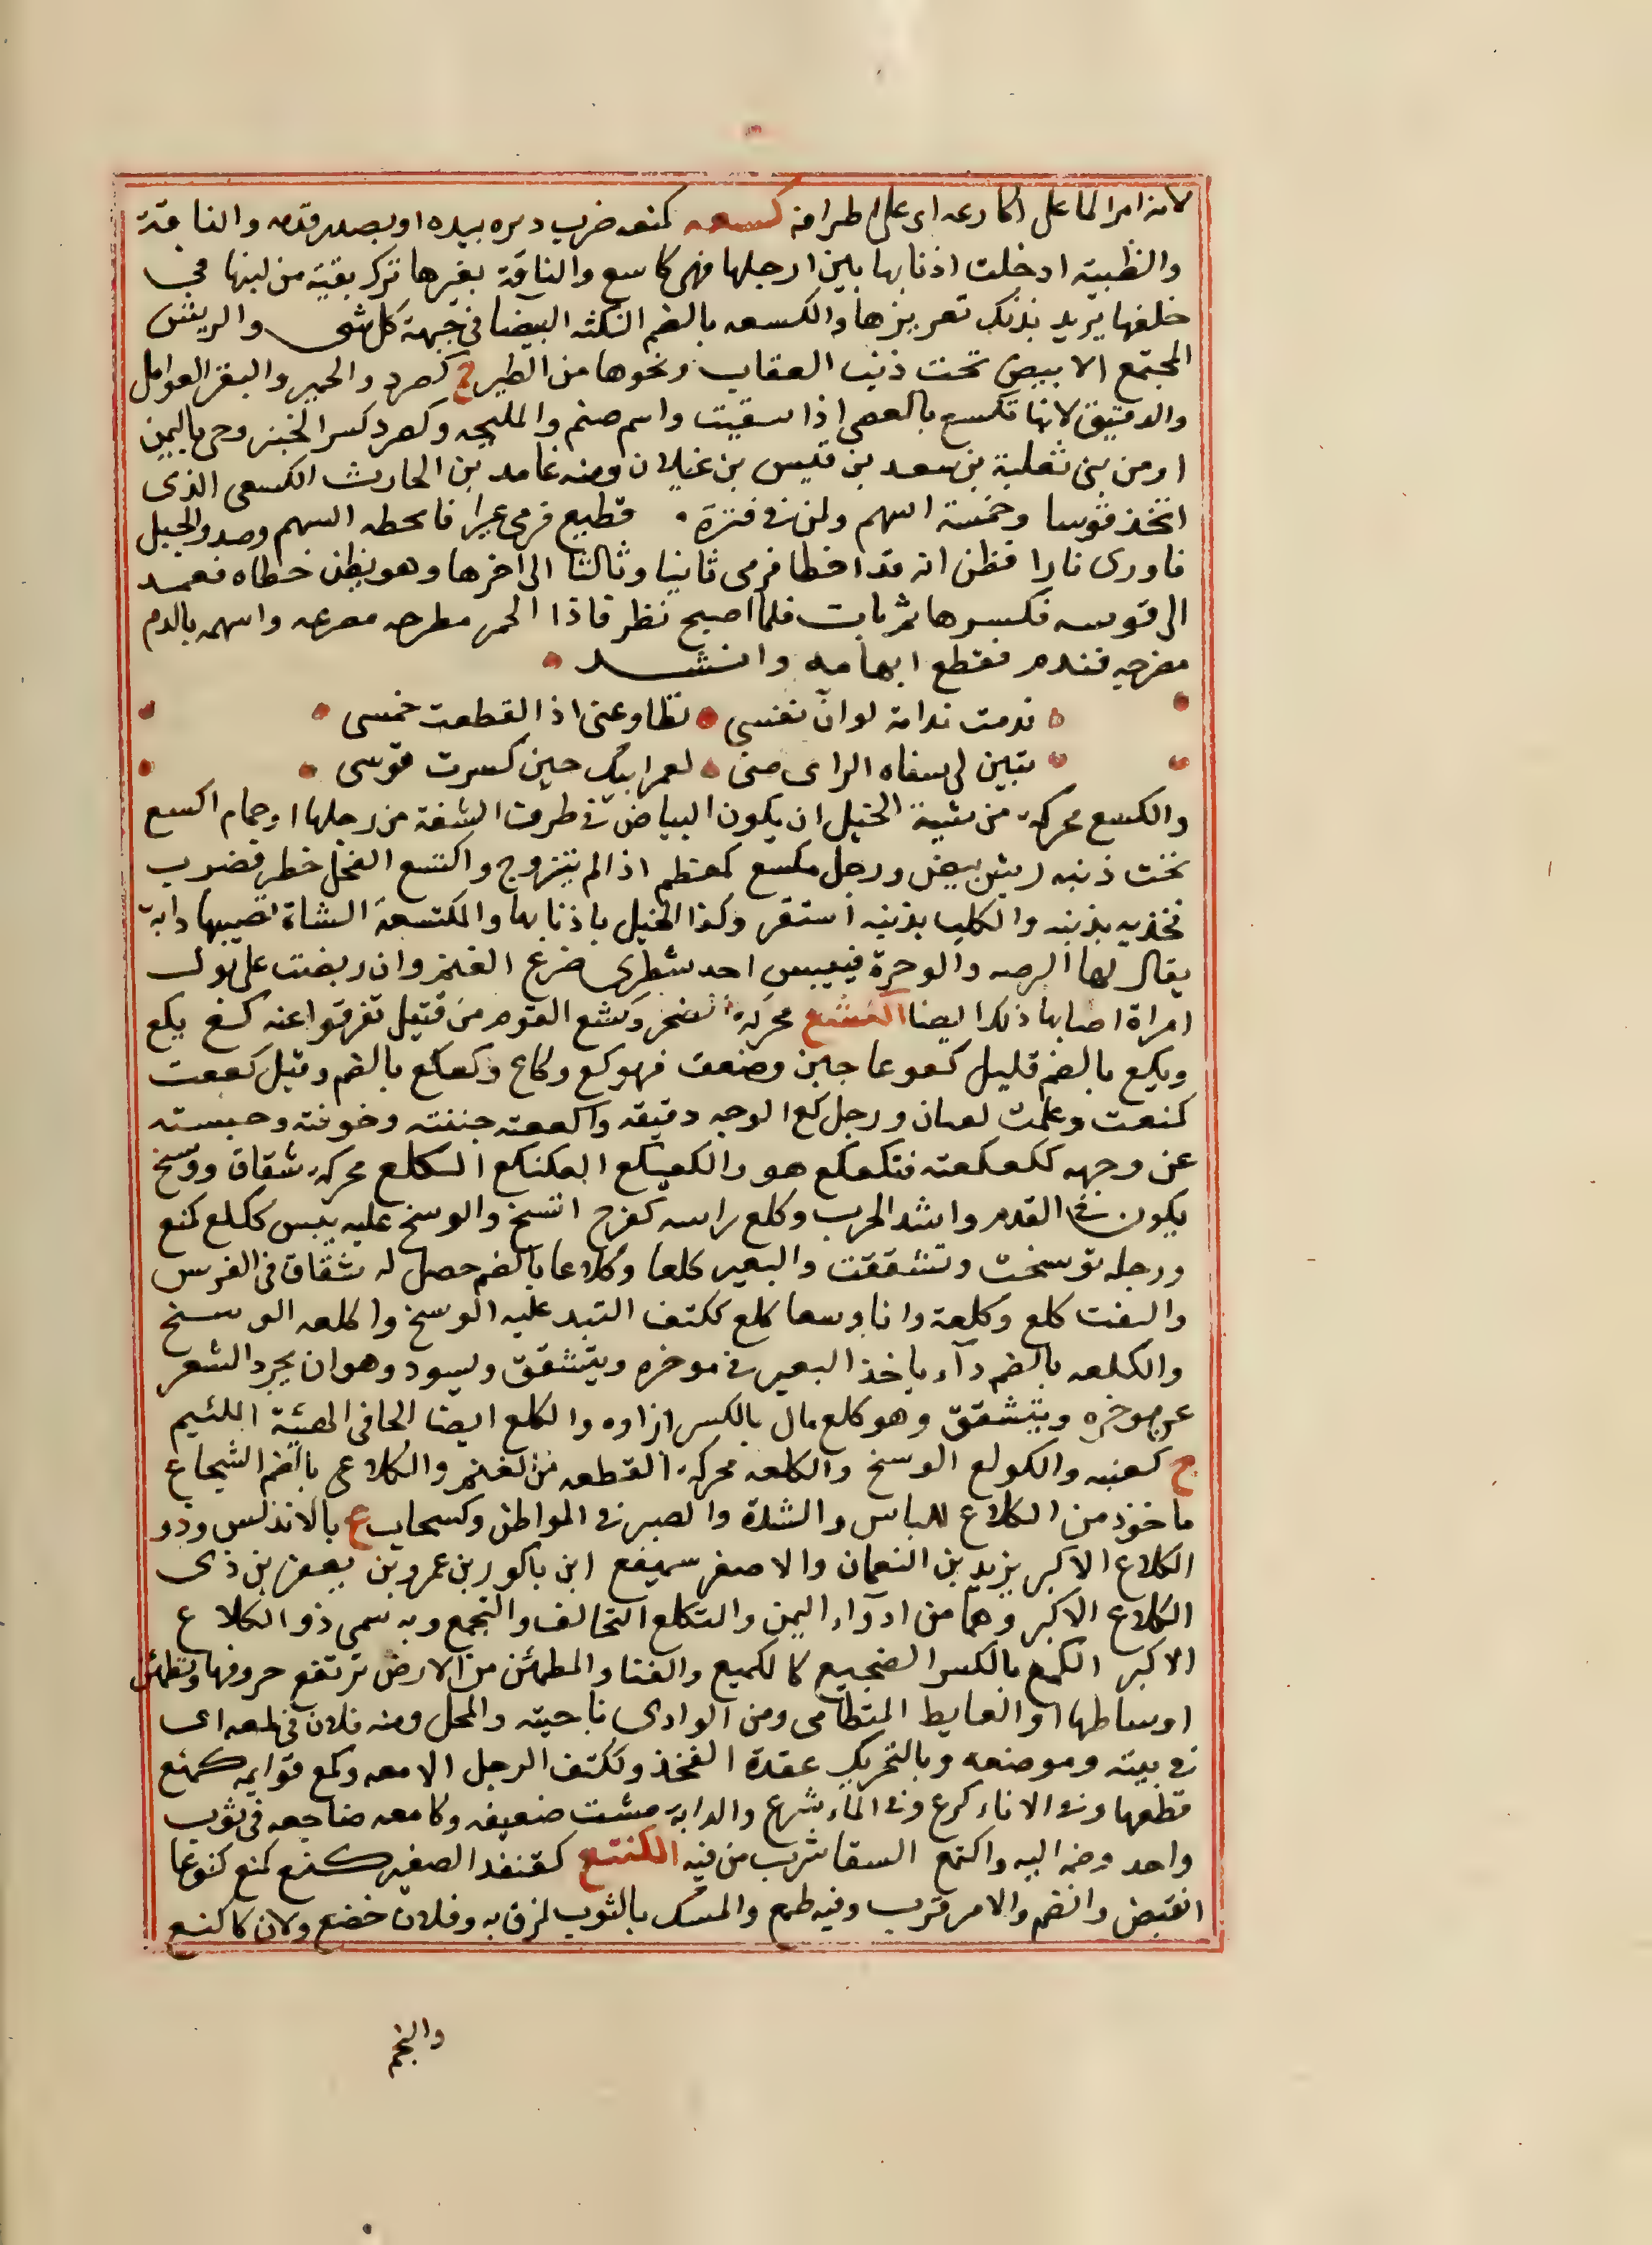 لانه امر الماعل اكارعه اى على اطرافه كسعه كمنعه ضرب دبره بيده او بصدر قدمه والناقة
والظبية ادخلت اذنابها بين ارجلها فهى كاسع والناقة بغيرها ترك بقية من لبنها فى
خلفها يريد بذلك تعزيزها والكسعه بالضم النكتة البيضا فى جبهة كل شى والريش
المجتمع الابيض تحت ذنب العقاب ونحوها من الطير ج كصرد والحمير والبقر العوامل
والدقيق لانها تكسع بالعصى اذا سقيت واسم صنم والمليحه وكصرد كسر الخبز وحى باليمن
او من بنى ثعلبة بن سعد بن قيس بن عيلان ومنه غامد بن الحارث الكسعى الذى
اتخذ قوسا وخمسة اسهم وكمن فى قترة قطيع فرمى عيرا فامخطه السهم وصدم الجبل
فاورى نارا فظن انه قد اخطا فرمى ثانيا وثالثا الى اخرها وهو يظن خطاه فعمد
الى قوسه فكسرها ثم بات فلما اصبح نظر فاذا الحمر مطرحه مصرعه واسهمه بالدم
مضرجه فندم فقطع ابهامه وانشد
ندمت ندامة لو ان نفسى تطاوعنى اذا لقطعت خمسى
تبين لى سفاه الراى منى لعمر ابيك حين كسرت قوسى
والكسع محركة من شية الخيل ان يكون البياض فى طرف الثنة من رجلها او حمام اكسع
تحت ذنبه ريش بيض ورجل مكسع كمعظم اذا لم يتزوج واكتسع الفحل خطر فضرب
فخذيه بذنبه والكلب بذنبه استثفر وكذا الخيل باذنابها والمكتسعة الشاة تصيبها دابة
يقال لها البرصه والوحرة فييبس احد شطرى ضرع الغنم وان ربضت على بول
امراة اصابها ذلك ايضا الكشع محركة الضجر وكشع القوم عن قتيل تفرقوا عنه كع يكع
ويكع بالضم قليل كعوعا جبن وضعف فهو كع وكاع وكعكع بالضم وقيل كععت
كمنعت وعلمت لغتان ورجل كع الوجه دقيقه واكعه جننته وخوفته وحبسته
عن وجهه ككعكعته فتكعكع هو والكعنكع العكنكع الكلع محركة شقاق ووسخ
يكون فى القدم واشد الجرب وكلع راسه كفرح اتسخ والوسخ عليه يبس ككلع كمنع
ورجله توسخت وتشققت والبعير كلعا وكلاعا بالضم حصل له شقاق فى الفرسن
والنعت كلع وكلعة وانا وسعا كلع ككتف التبد عليه الوسخ واكلعه الوسخ
والكلعه بالضم دآء ياخذ البعير فى موخره ويتشقق ويسود وهو ان يجرد الشعر
عن موخره ويتشقق وهو كلع مال بالكسر ازاوه والكلع ايضا الجافى الهيئة اللئيم
ج كعنبه والكولع الوسخ والكلعه محركة القطعه من الغنم والكلاعى بالضم الشجاع
ماخوذ من الكلاع للباس والشدة والصبر فى المواطن وكسحاب ع بالاندلس وذو
الكلاع الاكبر يزيد بن النعمان والاصغر سميفع ابن ناكور بن عمرو بن يعفر بن ذى
الكلاع الاكبر وهما من ادوآء اليمن والتكلع التحالف والتجمع وبه سمى ذو الكلاع
الاكبر الكمع بالكسر الضجيع كالكميع والفنا والمطمئن من الارض ترتفع حروفها وتطمئن
اوساطها او الغايط المتطامى ومن الوادى ناحيته والمحل ومنه فلان فى كمعه اى
فى بيته وموضعه وبالتحريك عقدة الفخذ وككتف الرجل الامعه وكمع قوايمه كمنع
قطعها وفى الاناء كرع وفى الماء شرع والدابة مشت ضعيفه وكامعه ضاجعه فى ثوب
واحد وضمه اليه واكتمع السقا شرب من فيه الكنتع كقنفذ القصير كنع كمنع كنوعا
انقبض وانضم والامر قرب وفيه طمع والمسك بالثوب لزق به وفلان خضع ولان كاكنع
والنجم